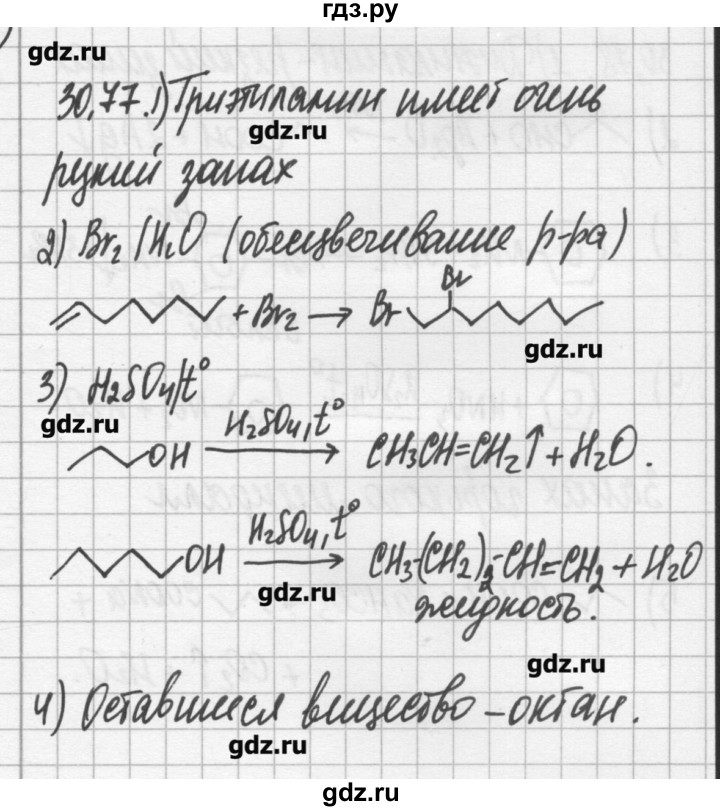 гдз.ру
gdz.ru
30.77. 1) Триэтиламин имеет очень
gdz.ru
резкий запах
2) Br2/H2O (обесцвечивание р-ра)
Br
+ Br2 → Br
gdz.ru
3) H2SO4/t°
gdz.ru
H2SO4, t°
OH → CH3CH=CH2↑ + H2O.
H2SO4, t°
OH → CH3-(CH2)2-CH=CH2 + H2O
gdz.ru
жидкость.
gdz.ru
4) Оставшиеся вещество - октан.
gdz.ru
gdz.ru